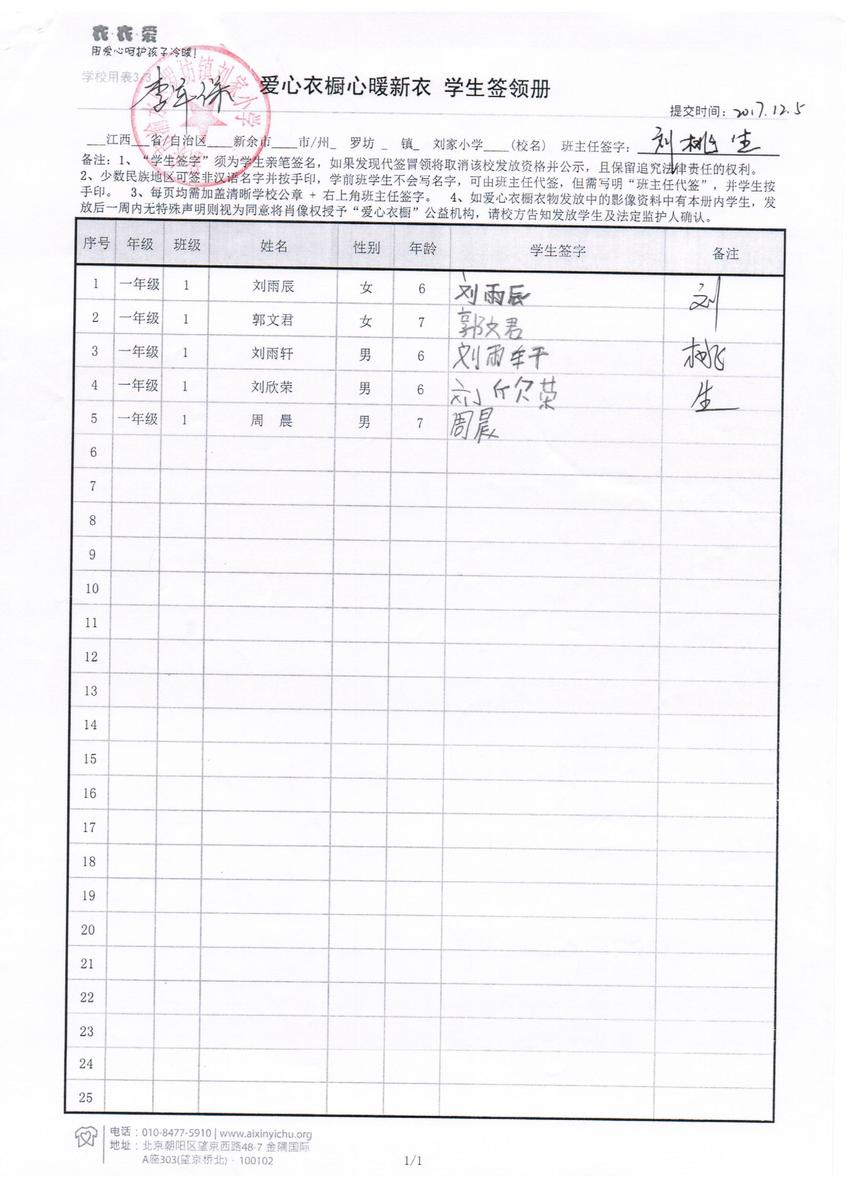 衣·衣·爱
用爱心呵护孩子冷暖!
学校用表3-3
爱心衣橱心暖新衣 学生签领册
提交时间：2017.12.5
___江西___省/自治区____新余市____市/州_ 罗坊 _ 镇_ 刘家小学____(校名) 班主任签字：刘桃生
备注：1、“学生签字”须为学生亲笔签名，如果发现代签冒领将取消该校发放资格并公示，且保留追究法律责任的权利。
2、少数民族地区可签非汉语名字并按手印，学前班学生不会写名字，可由班主任代签，但需写明“班主任代签”，并学生按
手印。 3、每页均需加盖清晰学校公章 + 右上角班主任签字。 4、如爱心衣橱衣物发放中的影像资料中有本册内学生，发
放后一周内无特殊声明则视为同意将肖像权授予“爱心衣橱”公益机构，请校方告知发放学生及法定监护人确认。
序号 年级 班级 姓名 性别 年龄 学生签字 备注
1 一年级 1 刘雨辰 女 6 刘雨辰 刘
2 一年级 1 郭文君 女 7 郭文君
3 一年级 1 刘雨轩 男 6 刘雨轩 桃
4 一年级 1 刘欣荣 男 6 刘欣荣 生
5 一年级 1 周 晨 男 7 周晨
6
7
8
9
10
11
12
13
14
15
16
17
18
19
20
21
22
23
24
25
电话：010-8477-5910 | www.aixinyichu.org
地址：北京朝阳区望京西路48-7 金隅国际
A座303(望京桥北) · 100102
1/1